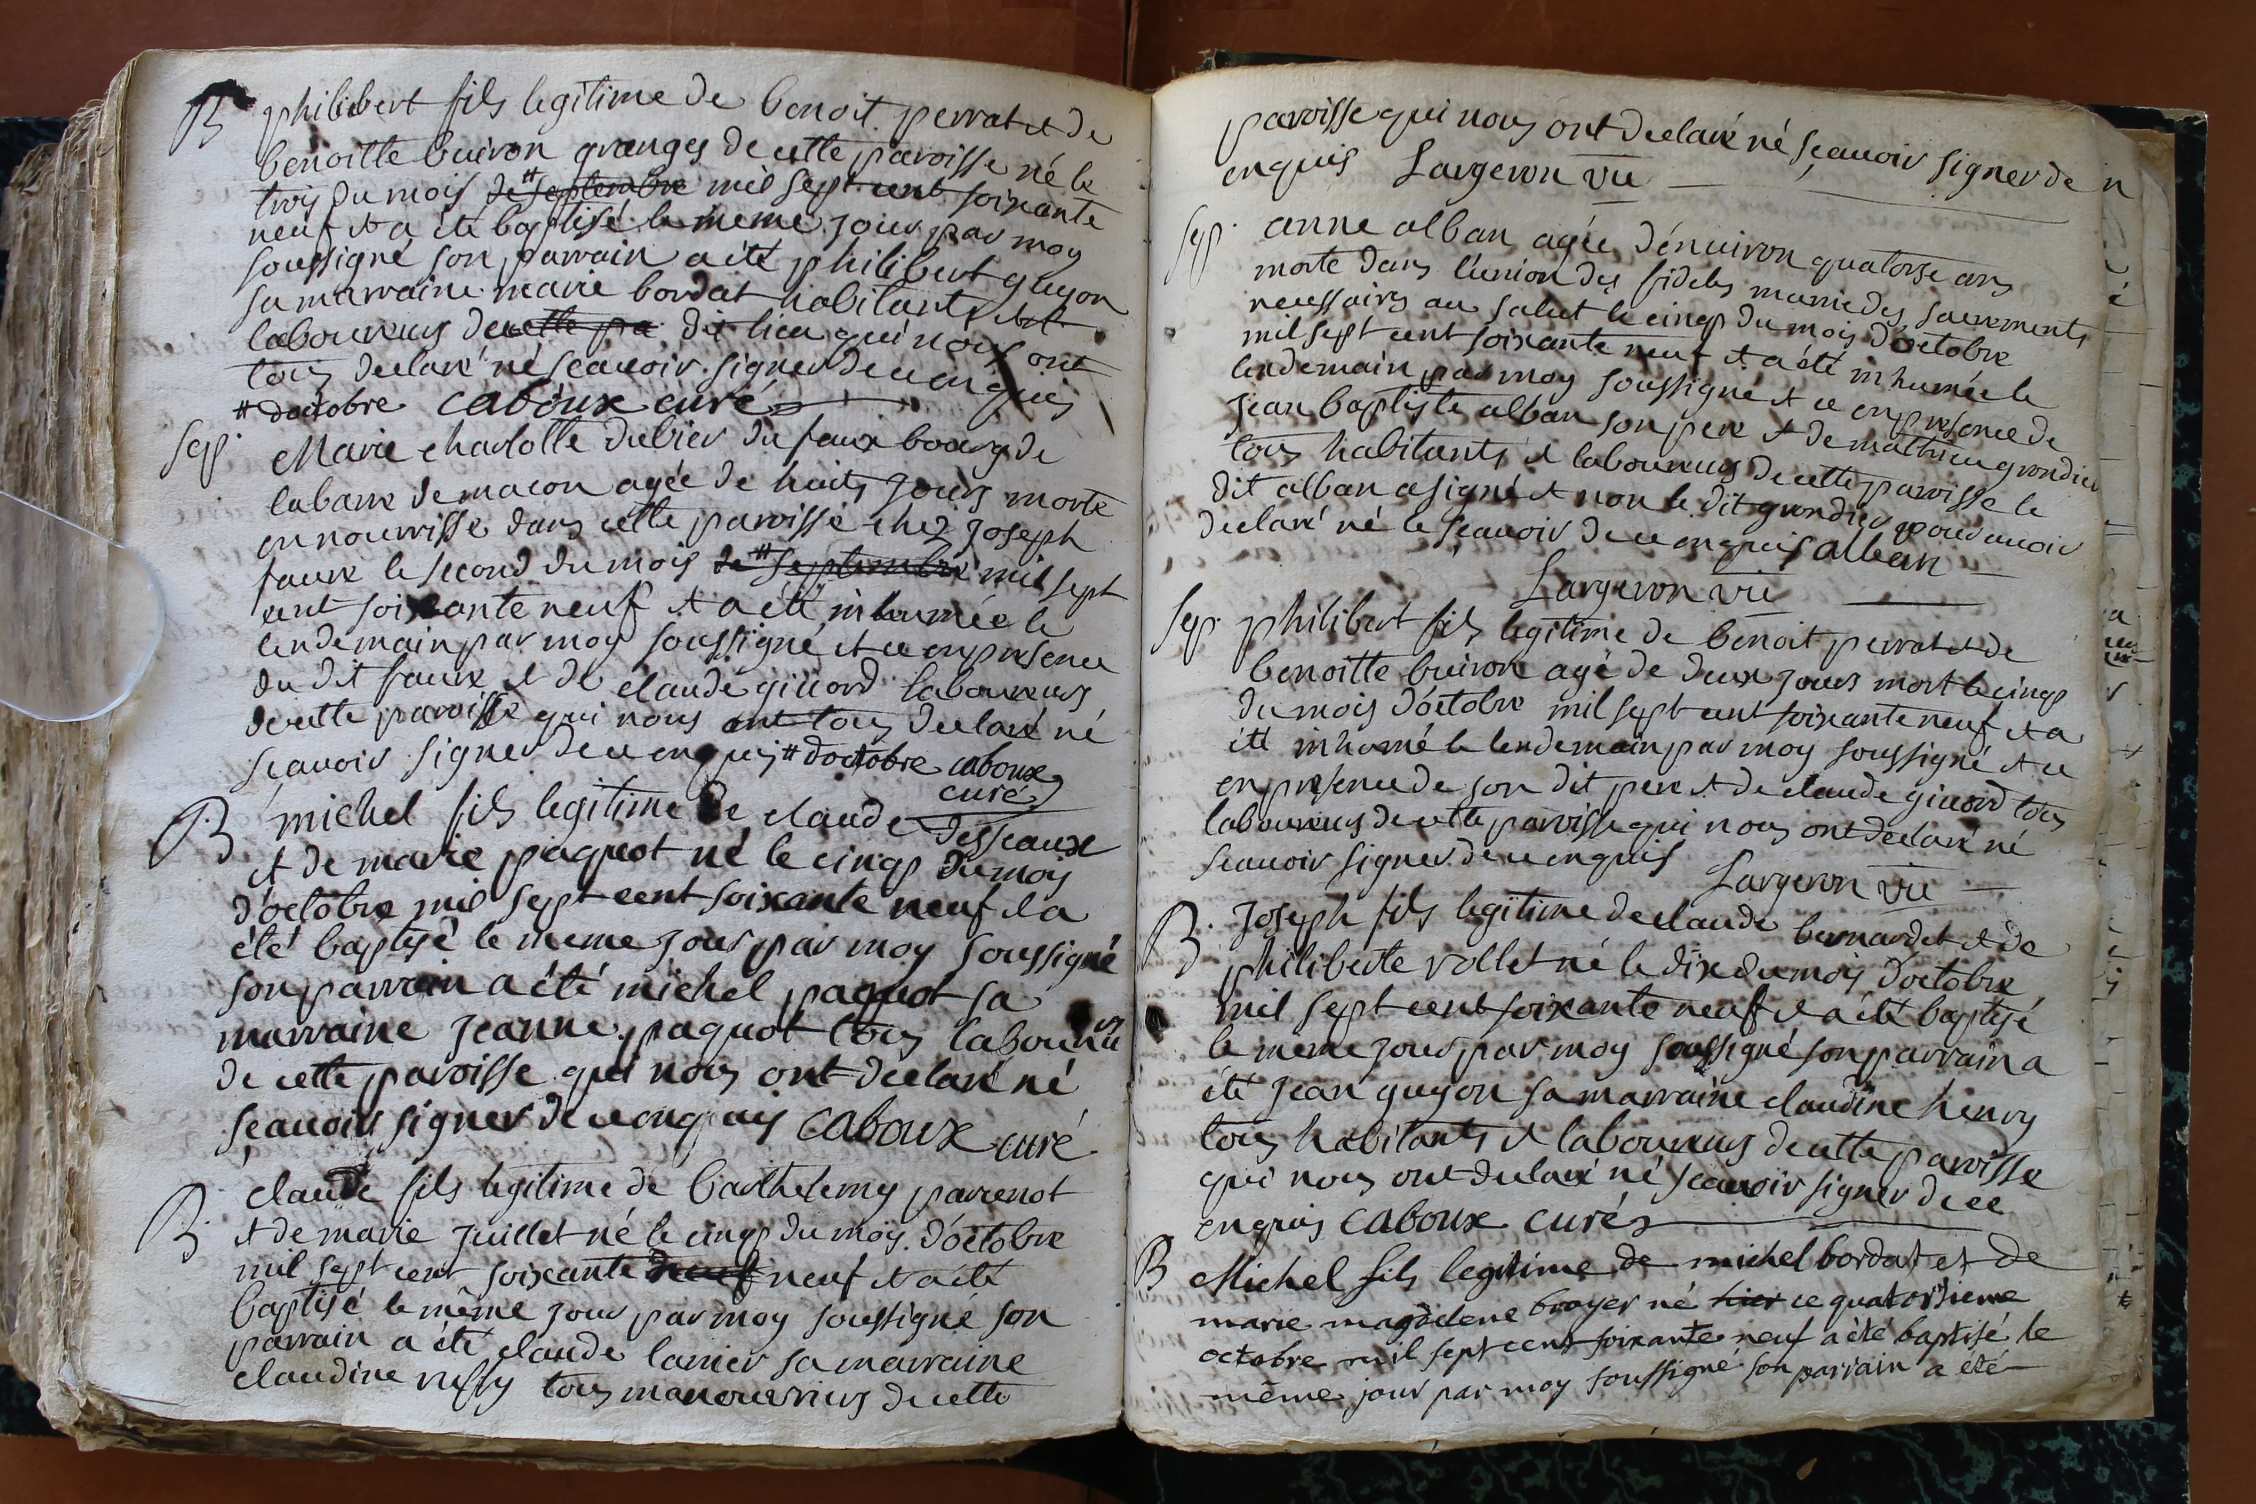 B philibert fils legitime de benoit perrat et de
benoitte buiron granges de cette paroisse né le
trois du mois de # septembre mil sept cent soixante
neuf et a été baptisé le meme jour par moy
soussigné son parrain a été philibert guyon
sa marraine marie bordat habitants et
laboureurs de cette pa dit lieu qui nous ont
tous declaré né scavoir signer de ce enquis
# doctobre caboux curé
sep. Marie charlotte dubier du faux bourg de
labarre de macon agée de huits jours morte
en nourrisse dans cette paroisse chez joseph
faure le second du mois de # septembre mil sept
cent soixante neuf et a été inhumée le
lendemain par moy soussigné et ce en presence
du dit faure et de claude giuord laboureurs
de cette paroisse qui nous ont tous declaré né
scavoir signer de ce enquis # doctobre caboux
curé
B michel fils legitime de claude desseaux
et de marie paquot né le cinq du mois
d'octobre mil sept cent soixante neuf et a
été baptisé le meme jour par moy soussigné
son parrain a été michel paquot sa
marraine jeanne paquot tous laboureurs
de cette paroisse qui nous ont declaré né
sçavoir signer de ce enquis caboux curé
B. claude fils legitime de barthelemy parenot
et de marie juillet né le cinq du mois d'octobre
mil sept cent soixante neuf neuf et a été
baptisé le même jour par moy soussigné son
parrain a été claude lanier sa marraine
claudine tous manouvriers de cette
paroisse qui nous ont declaré né sçauoir signer de
enquis Largeron vic
sep. anne alban agée d'énuiron quatorse ans
morte dans l'union des fideles munie des sacrements
necessaires au salut le cinq du mois d'octobre
mil sept cent soixante neuf et a été inhumée le
lendemain par moy soussigné et ce en presence de
jean baptiste alban son pere et de mathieu grondier
tous habitants et laboureurs de cette paroisse le
dit alban a signé et non le dit grondier pour auoir
declaré né le scauoir de ce enquis alban
Largeron vic
sep. philibert fils legitime de benoit perrat et de
benoitte buiron agé de deux jours mort le cinq
du mois d'octobre mil sept cent soixante neuf et a
été inhumé le lendemain par moy soussigné et ce
en presence de son dit pere et de claude giuord tous
laboureurs de cette paroisse qui nous ont declaré né
scauoir signer de ce enquis Largeron vic
B. Joseph fils legitime de claude bernardet et de
philiberte vollet né le dix du mois d'octobre
mil sept cent soixante neuf et a été baptisé
le meme jour par moy soussigné son parrain a
été jean guyon sa marraine claudine henry
tous habitants et laboureurs de cette paroisse
qui nous ont declaré né scauoir signer de ce
enquis caboux curé
B Michel fils legitime de michel bordat et de
marie magdelene broyer né hier ce quatorsieme
octobre mil sept cent soixante neuf a été baptisé le
même jour par moy soussigné son parrain a été